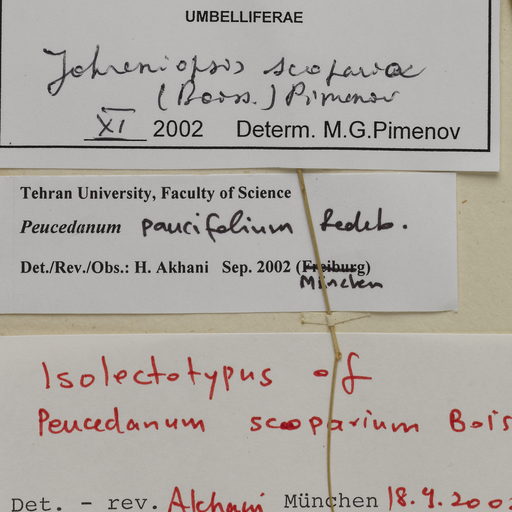 UMBELLIFERAE
Johreniopsis scoparia
(Boiss.) Pimenov
XI 2002 Determ. M.G.Pimenov
Tehran University, Faculty of Science
Peucedanum paucifolium Ledeb.
Det./Rev./Obs.: H. Akhani Sep. 2002 (Freiburg)
München
Isolectotypus of
Peucedanum scoparium Bois
Det. - rev. Akhani München 18.9.2002